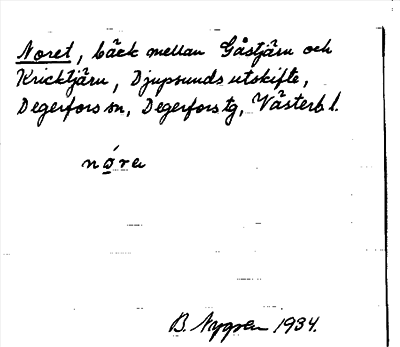 Noret, bäck mellan Gåstjärn och
Kricktjärn, Djupsunds utskifte,
Degerfors sn, Degerfors tg, Västerb l.
nǿra
B. Nygren 1934.